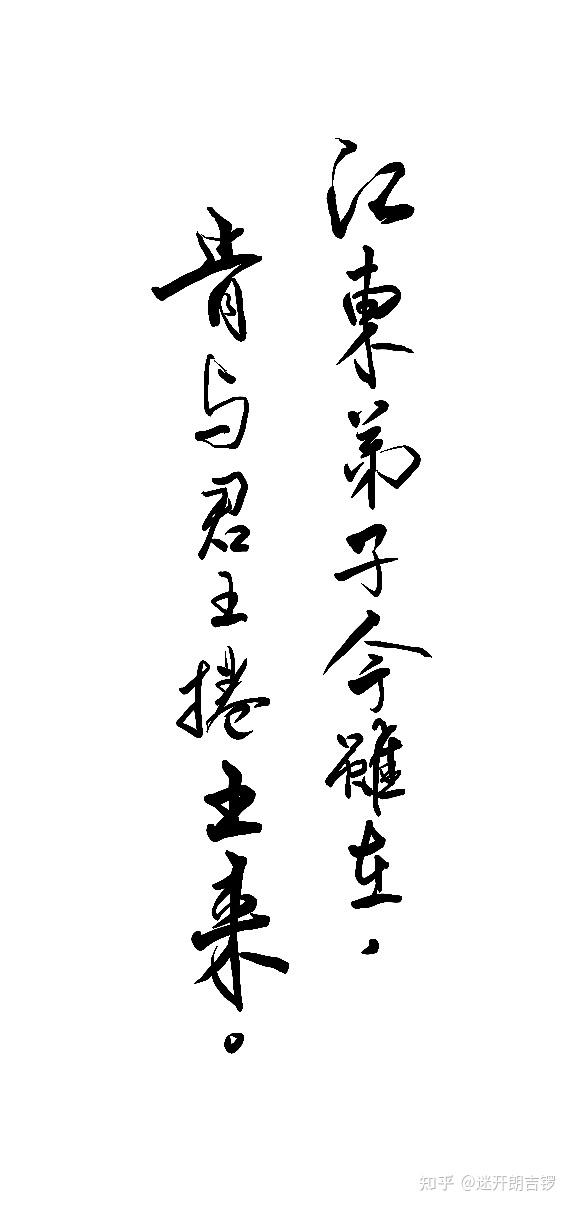 江東弟子今雖在，
肯与君王捲土来。
知乎 @迷开朗吉锣